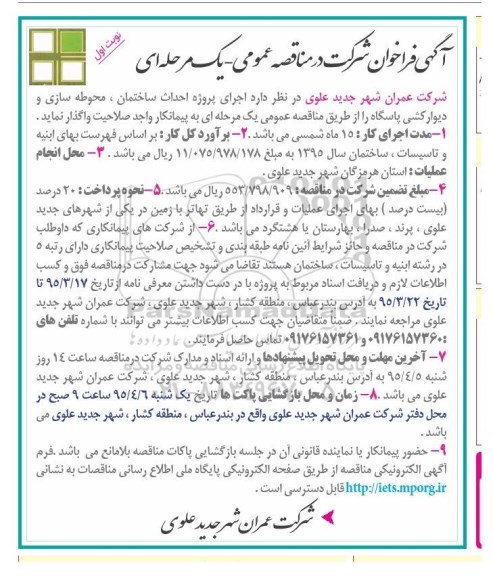 آگهی فراخوان شرکت در مناقصه عمومی - یک مرحله ای
نوبت اول
شرکت عمران شهر جدید علوی در نظر دارد اجرای پروژه احداث ساختمان ، محوطه سازی و
دیوارکشی پاسگاه را از طریق مناقصه عمومی یک مرحله ای به پیمانکار واجد صلاحیت واگذار نماید .
۱-مدت اجرای کار : ۱۵ ماه شمسی می باشد .۲- برآورد کل کار : بر اساس فهرست بهای ابنیه
و تاسیسات ، ساختمان سال ۱۳۹۵ به مبلغ ۱۱/۰۷۵/۹۷۸/۱۷۸ ریال می باشد . ۳- محل انجام
عملیات : استان هرمزگان شهر جدید علوی .
۴-مبلغ تضمین شرکت در مناقصه : ۵۵۳/۷۹۸/۹۰۹ ریال می باشد .۵-نحوه پرداخت : ۲۰ درصد
(بیست درصد ) بهای اجرای عملیات و قرارداد از طریق تهاتر با زمین در یکی از شهرهای جدید
علوی ، پرند ، صدرا ، بهارستان یا هشتگرد می باشد .۶- از شرکت های پیمانکاری که داوطلب
شرکت در مناقصه و حائز شرایط آئین نامه طبقه بندی و تشخیص صلاحیت پیمانکاری دارای رتبه ۵
در رشته ابنیه و تاسیسات ، ساختمان هستند تقاضا می شود جهت مشارکت درمناقصه فوق و کسب
اطلاعات لازم و دریافت اسناد مربوط به پروژه با در دست داشتن معرفی نامه از تاریخ ۹۵/۳/۱۷ تا
تاریخ ۹۵/۳/۲۲ به آدرس بندرعباس ، منطقه کشار ، شهر جدید علوی ، شرکت عمران شهر جدید
علوی مراجعه نمایند . ضمنا متقاضیان جهت کسب اطلاعات بیشتر می توانند با شماره تلفن های
:۰۹۱۷۶۱۵۷۳۶۰ و ۰۹۱۷۶۱۵۷۳۶۱ تماس حاصل فرمایند.
۷- آخرین مهلت و محل تحویل پیشنهادها و ارائه اسناد و مدارک شرکت درمناقصه ساعت ۱۴ روز
شنبه ۹۵/۴/۵ به آدرس بندرعباس ، منطقه کشار ، شهر جدید علوی ، شرکت عمران شهر جدید
علوی می باشد .۸- زمان و محل بازگشایی پاکت ها تاریخ یک شنبه ۹۵/۴/۶ ساعت ۹ صبح در
محل دفتر شرکت عمران شهر جدید علوی واقع در بندرعباس ، منطقه کشار ، شهر جدید علوی می
باشد .
۹- حضور پیمانکار یا نماینده قانونی آن در جلسه بازگشایی پاکات مناقصه بلامانع می باشد .فرم
آگهی الکترونیکی مناقصه از طریق صفحه الکترونیکی پایگاه ملی اطلاع رسانی مناقصات به نشانی
http://iets.mporg.ir قابل دسترسی است .
شرکت عمران شهر جدید علوی